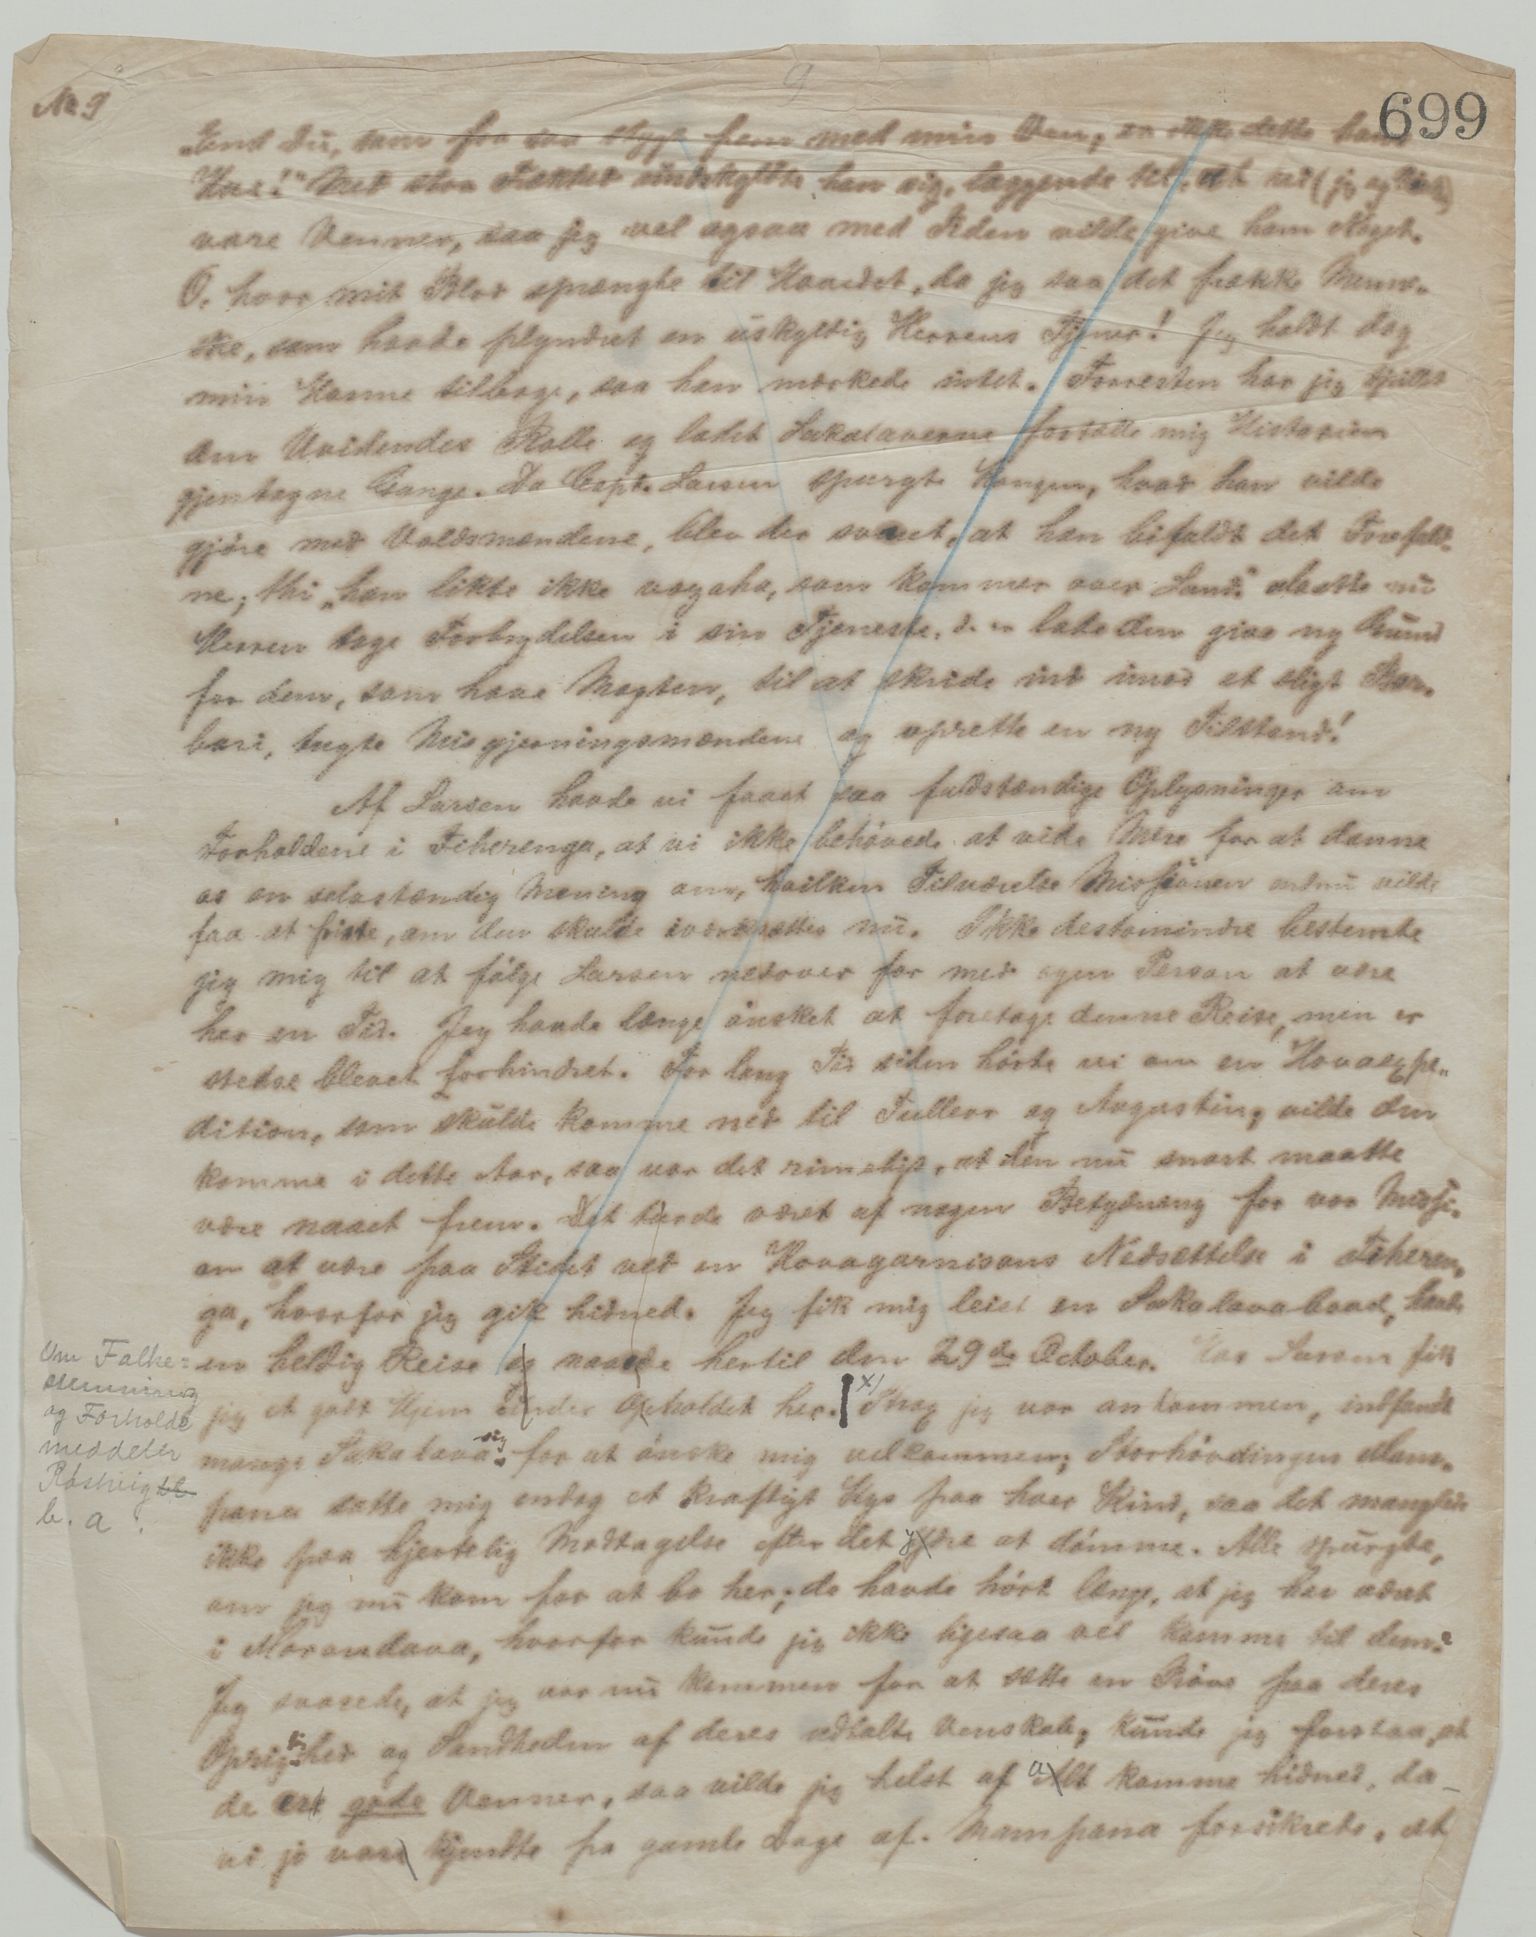 No 9
9
699
"End Du, som for saa stygt frem med min Ven, er ikke dette hans
Hue!" Med store Fagter undskyldte han sig, læggende til, at vi (jeg og
vare Venner, saa jeg vel ogsaa med Tiden vilde give ham Noget.
O, hvor mit Blod sprængte til Hovedet, da jeg saa det frække Menne-
ske, som havde plyndret en uskyldig Herrens Tjener! Jeg holdt dog
min Harme tilbage, saa han mærkede intet. Forresten har jeg spillet
den Uvidendes Rolle og ladet Sakalaverne fortælle mig Historien
gjentagne Gange. Da Capt. Larsen spurgte Kongen, hvad han vilde
gjöre med Voldsmændene, blev der svaret, at han bifaldt det Forefald-
ne; thi "han likte ikke vazaha, som kommer over Land." Maatte nu
Herren tage Forbrydelsen i sin Tjeneste, d. e. lade den give ny Grund
for dem, som have Magten, til at skride ind imod et sligt Bar-
bari, tugte Misgjerningsmændene og oprette en ny Tilstand!
Af Larsen havde vi faaet saa fuldstændige Oplysninger om
Forholdene i Fiherenga, at vi ikke behövede at vide Mere for at danne
os en selvstændig Mening om, hvilken Tilværelse Missionen endnu vilde
faa at friste, om den skulde iværksættes nu. Ikke destomindre bestemte
jeg mig til at fölge Larsen nedover for med egen Person at være
her en Tid. Jeg havde længe önsket at foretage denne Reise, men er
stedse blevet forhindret. For lang Tid siden hörte vi om en Hovaexpe-
dition, som skulde komme ned til Tullear og Augustin; vilde den
komme i dette Aar, saa var det rimeligt, at den nu snart maatte
være naaet frem. Det turde været af nogen Betydning for vor Missi-
on at være paa Stedet ved en Hovagarnisons Nedsættelse i Fiheren-
ga, hvorfor jeg gik hidned. Jeg fik mig leiet en Sakalavabaad, havde
en heldig Reise og naaede hertil den 29de October. Hos Larsen fik
jeg et godt Hjem under Opholdet her. x) Strax jeg var ankommen, indfandt
mange Sakalava sig for at önske mig velkommen; Storhövdingen Mam-
pana satte mig endog et kraftigt Kys paa hver Kind, saa det manglede
ikke paa hjertelig Modtagelse efter det ydre at dömme. Alle spurgte,
om jeg nu kom for at bo her; de havde hört længe, at jeg har været
i Morondava, hvorfor kunde jeg ikke ligesaa vel komme til dem?
Jeg svarede, at jeg var nu kommen for at sætte en Pröve paa deres
Oprigtighed og Sandheden af deres udtalte Venskab; kunde jeg forstaa, at
de er gode Venner, saa vilde jeg helst af alt komme hidned, da
vi jo var kjendte fra gamle Dage af. Mampana forsikrede, at
Om Folke=
stemning
og Forholde
meddeler
Röstvig
b. a.: